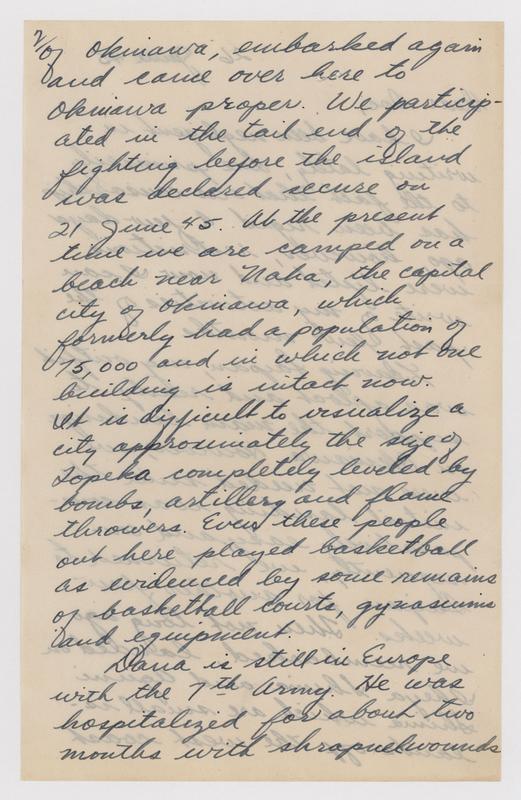 2/
of Okinawa, embarked again
and came over here to
Okinawa proper. We particip-
ated in the tail end of the
fighting before the island
was declared secure on
21 June 45. At the present
time we are camped on a
beach near Naha, the capital
city of Okinawa, which
formerly had a population of
75,000 and in which not one
building is intact now.
It is difficult to visualize a
city approximately the size of
Topeka completely leveled by
bombs, artillery and flame
throwers. Even these people
out here played basketball
as evidenced by some remains
of basketball courts, gynasiums
and equipment.
Dana is still in Europe
with the 7th Army. He was
hospitalized for about two
months with shrapnel wounds